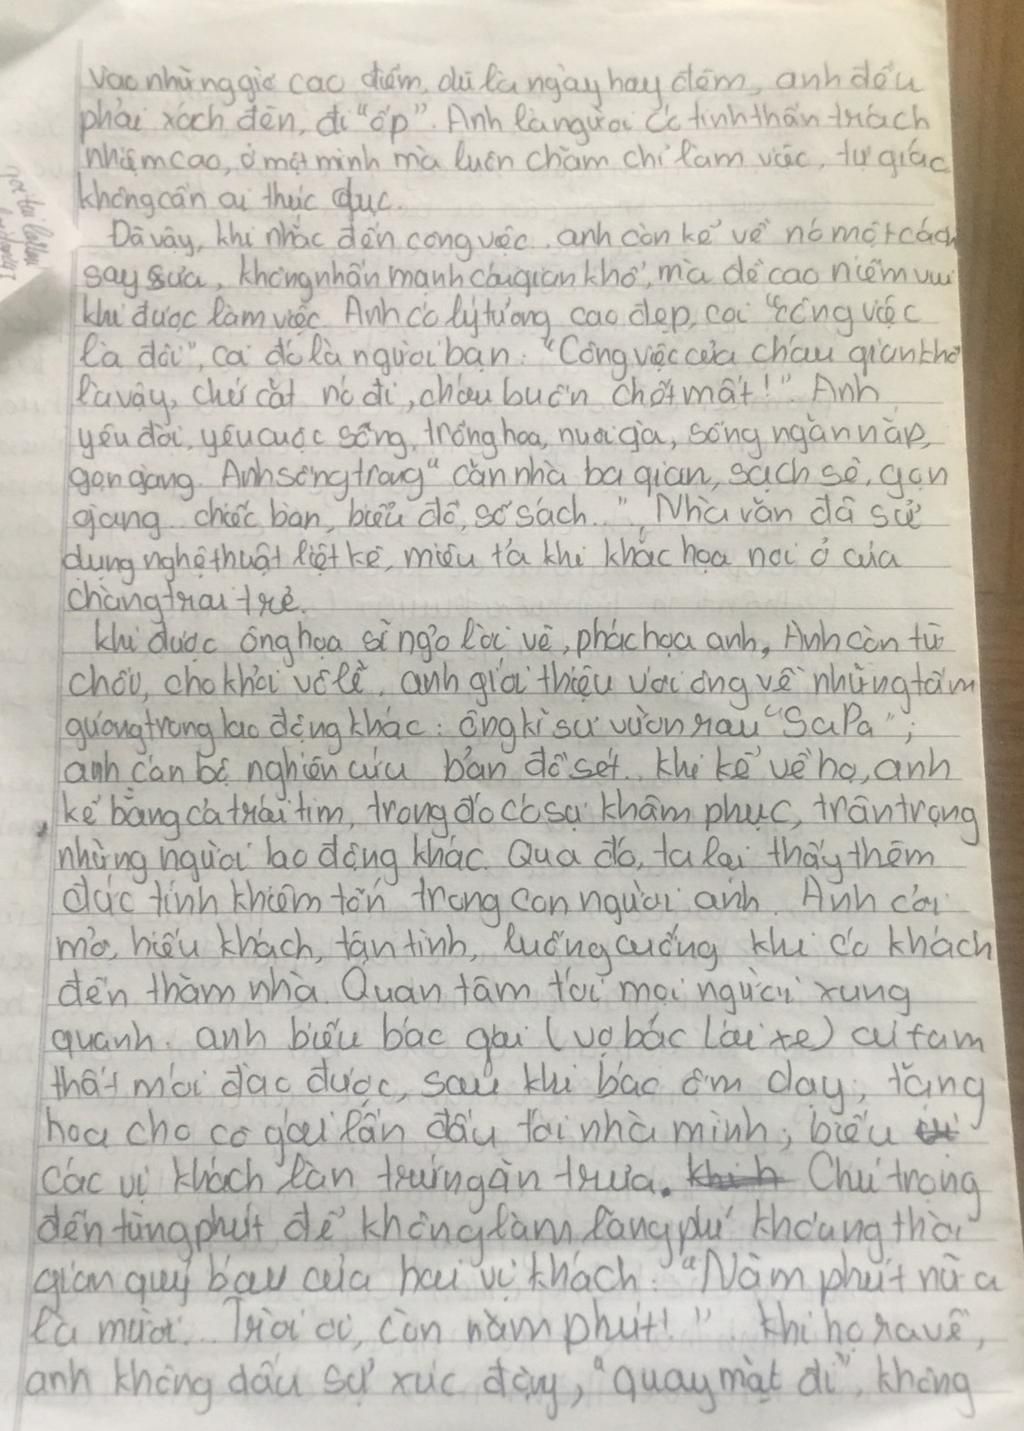 vào những giờ cao điểm, dù là ngày hay đêm, anh đều
phải xách đèn, đi "ốp". Anh là người có tinh thần trách
nhiệm cao, ở một mình mà luôn chăm chỉ làm việc, tự giác
không cần ai thúc giục.
Dù vậy, khi nhắc đến công việc, anh còn kể về nó một cách
say sưa, không nhấn mạnh cái gian khổ, mà đề cao niềm vui
khi được làm việc. Anh có lý tưởng cao đẹp, coi "công việc
là đôi", coi đó là người bạn: "Công việc của cháu gian khổ
là vậy, chứ cắt nó đi, cháu buồn chết mất!". Anh
yêu đời, yêu cuộc sống, trồng hoa, nuôi gà, sống ngăn nắp,
gọn gàng. Anh sống trong "căn nhà ba gian, sạch sẽ, gọn
gàng... chiếc bàn, biểu đồ, sổ sách...". Nhà văn đã sử
dụng nghệ thuật liệt kê, miêu tả khi khắc họa nơi ở của
chàng trai trẻ.
Khi được ông họa sĩ ngỏ lời vẽ, phác họa anh, Anh còn từ
chối, cho khỏi vô lễ, anh giới thiệu với ông về những tấm
gương trong lao động khác: ông kĩ sư vườn rau "SaPa";
anh cán bộ nghiên cứu bản đồ sét. Khi kể về họ, anh
kể bằng cả trái tim, trong đó có sự khâm phục, trân trọng
những người lao động khác. Qua đó, ta lại thấy thêm
đức tính khiêm tốn trong con người anh. Anh cởi
mở, hiếu khách, tận tình, luống cuống khi có khách
đến thăm nhà. Quan tâm tới mọi người xung
quanh. anh biếu bác gái (vợ bác lái xe) củ tam
thất mới đào được, sau khi bác ốm dậy; tặng
hoa cho cô gái lần đầu tới nhà mình; biếu
các vị khách làn trứng ăn trưa. Chú trọng
đến từng phút để không làm lãng phí khoảng thời
gian quý báu của hai vị khách: "Năm phút nữa
là mười. Trời ơi, còn năm phút!". Khi họ ra về,
anh không dấu sự xúc động, "quay mặt đi", không